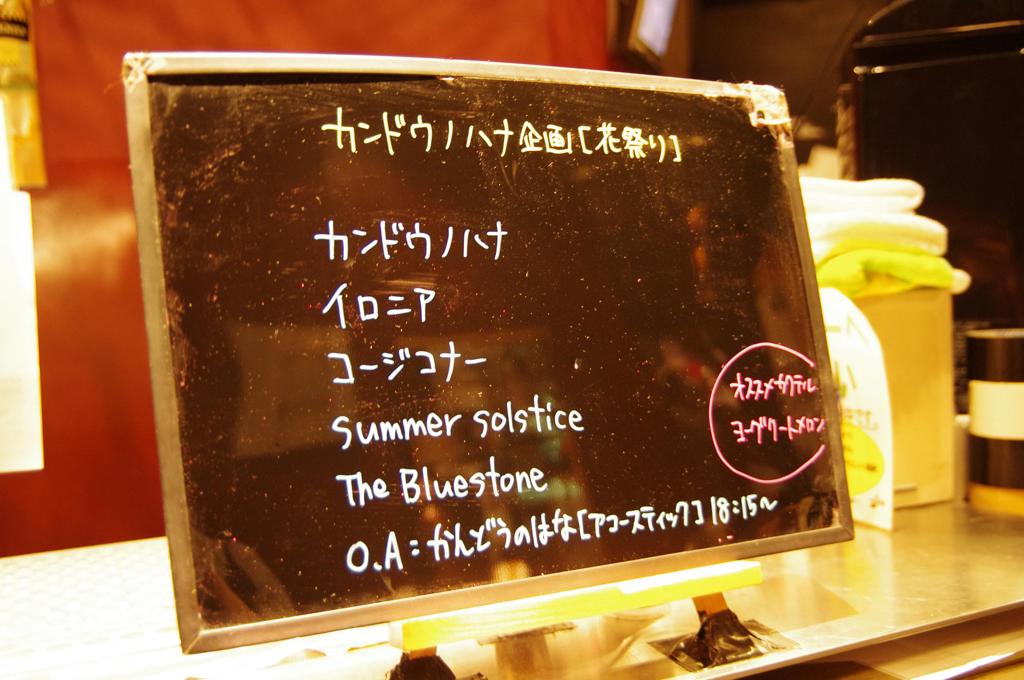 カンドウノハナ企画[花祭り]
カンドウノハナ
イロニア
コージコナー
summer solstice
The Bluestone
O.A:かんどうのはな[アコースティック]18:15~
オススメカクテル
ヨーグルートメロン